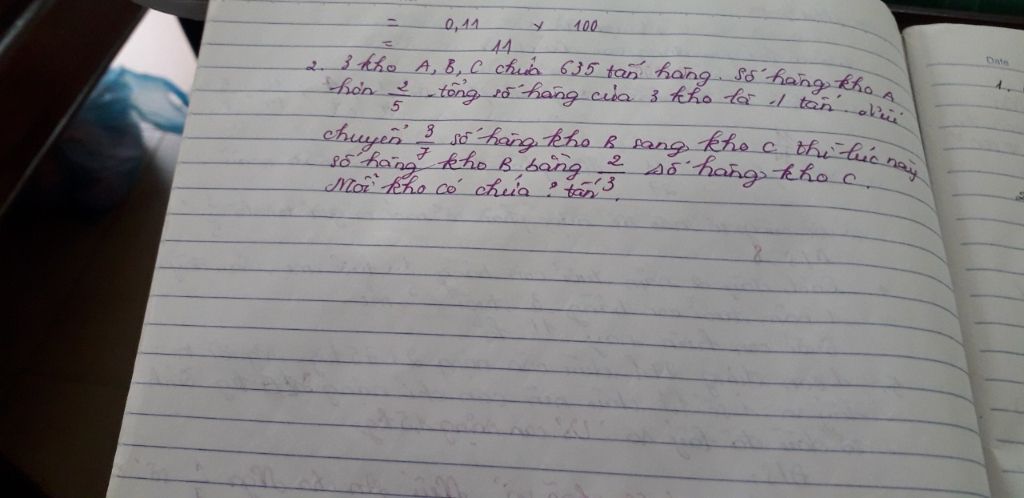 = 0,11 x 100
= 11
2. 3 kho A, B, C chứa 635 tấn hàng. Số hàng kho A
hơn 2/5 tổng số hàng của 3 kho là 1 tấn. Nếu
chuyển 3/7 số hàng kho B sang kho C thì lúc này
số hàng kho B bằng 2/3 số hàng kho C.
Mỗi kho có chứa ? tấn.
Date
1.